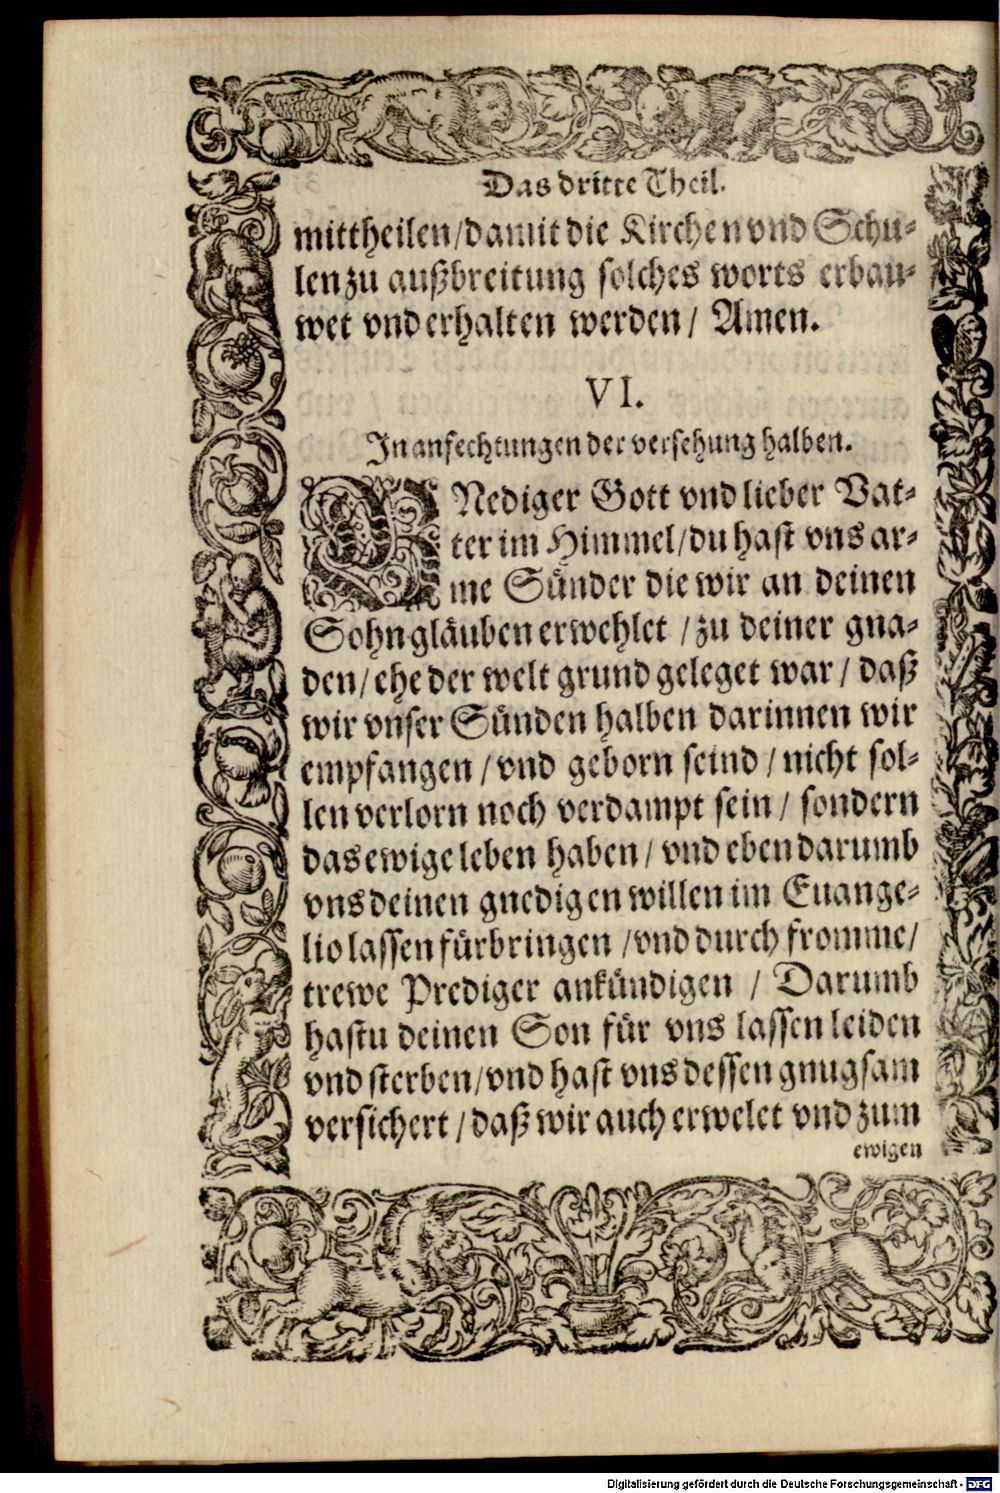 Das dritte Theil.
mittheilen/damit die Kirchen vnd Schu-
len zu außbreitung solches worts erbau-
wet vnd erhalten werden/ Amen.
VI.
In anfechtungen der versehung halben.
GNediger Gott vnd lieber Vat-
ter im Himmel/du hast vns ar-
me Sünder die wir an deinen
Sohn gläuben erwehlet /zu deiner gna-
den/ehe der welt grund geleget war/ daß
wir vnser Sünden halben darinnen wir
empfangen /vnd geborn seind /nicht sol-
len verlorn noch verdampt sein/ sondern
das ewige leben haben/ vnd eben darumb
vns deinen gnedigen willen im Euange-
lio lassen fürbringen /vnd durch fromme/
trewe Prediger ankündigen / Darumb
hastu deinen Son für vns lassen leiden
vnd sterben/vnd hast vns dessen gnugsam
versichert /daß wir auch erwelet vnd zum
ewigen
Digitalisierung gefördert durch die Deutsche Forschungsgemeinschaft - DFG